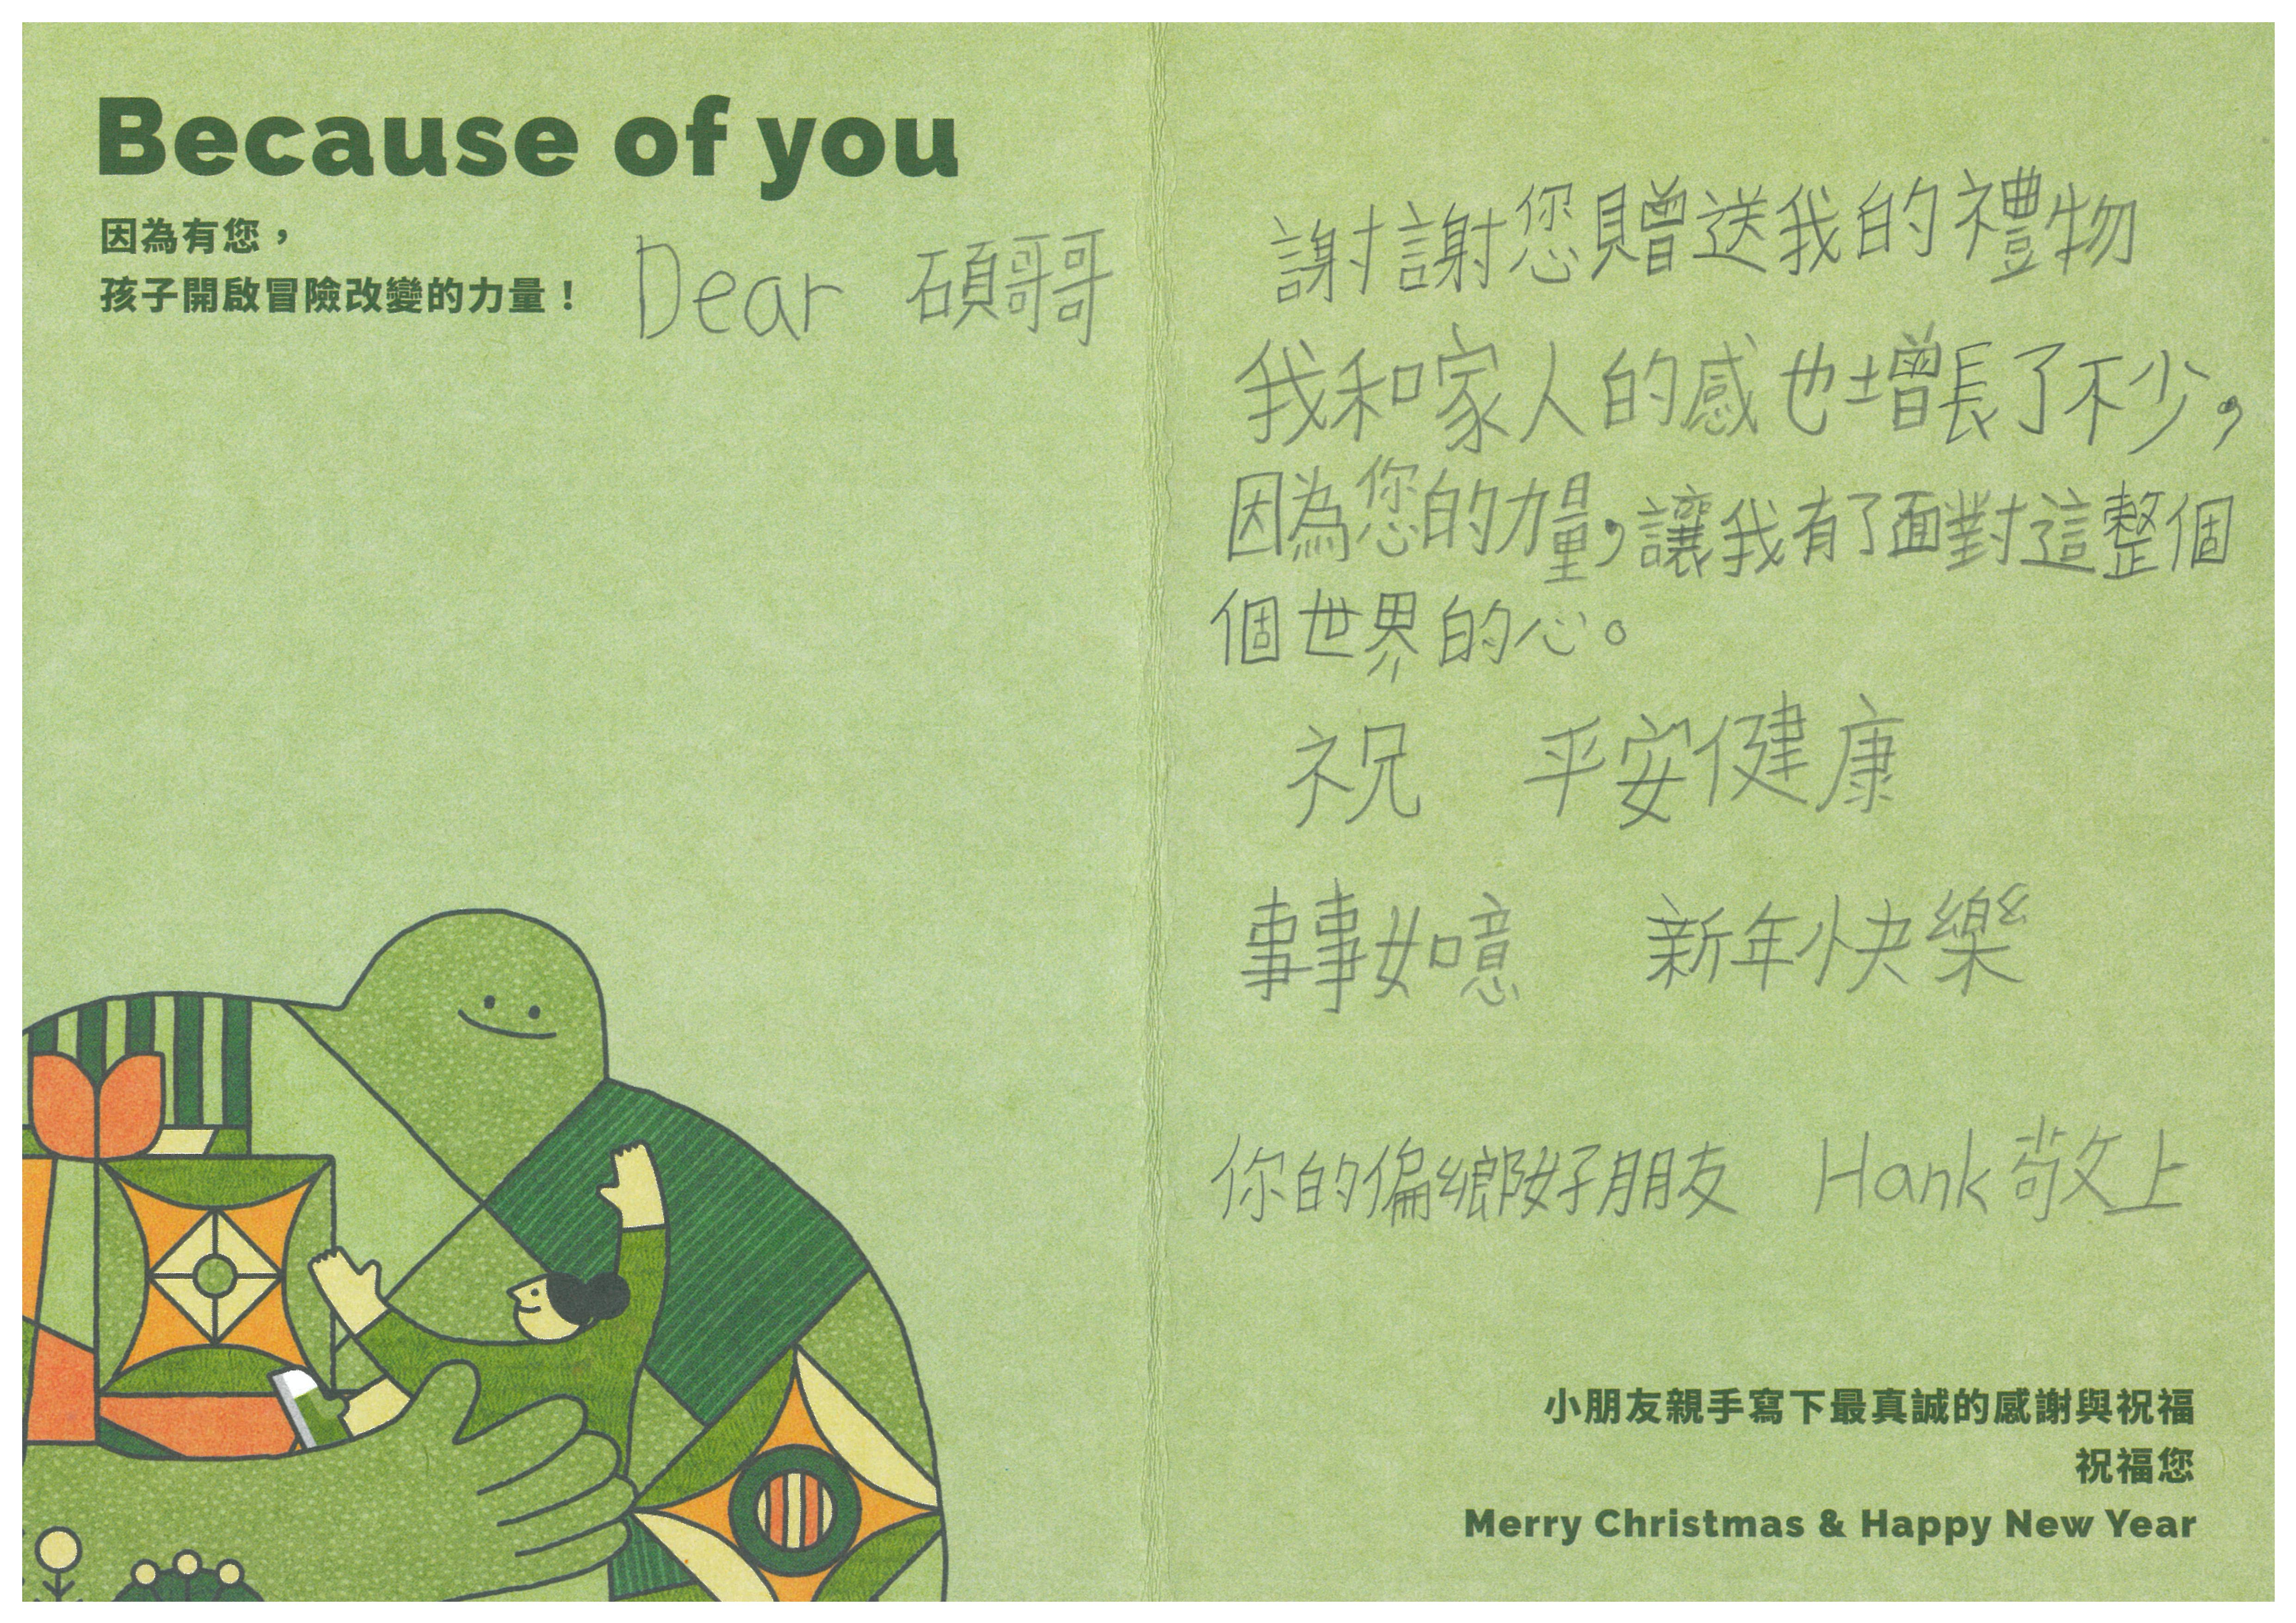 Because of you
因為有您，
孩子開啟冒險改變的力量！
Dear 碩哥哥
謝謝您贈送我的禮物
我和家人的感也增長了不少，
因為您的力量，讓我有了面對這整個
個世界的心。
祝 平安健康
事事如意 新年快樂
你的偏鄉好朋友 Hank 敬上
小朋友親手寫下最真誠的感謝與祝福
祝福您
Merry Christmas & Happy New Year